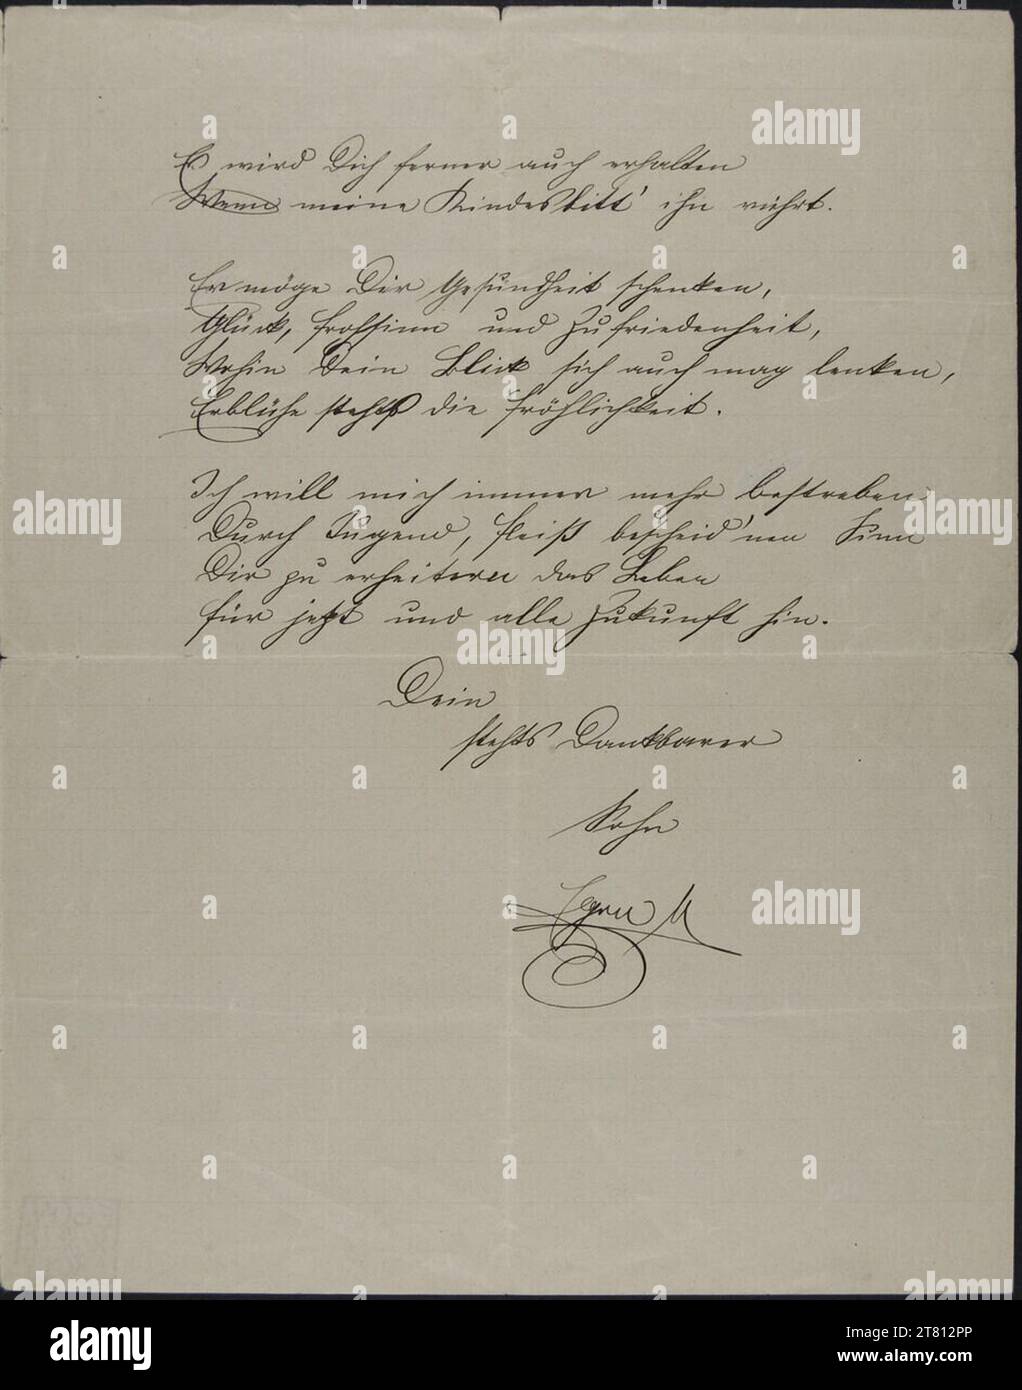 Er wird Dich ferner auch erhalten
Wenn meine Kindesbitt' ihn rührt.
Er möge Dir Gesundheit schenken,
Glück, Frohsinn und Zufriedenheit,
Wohin Dein Blick sich auch mag lenken,
Erblühe stehts die Fröhlichkeit.
Ich will mich immer mehr bestreben
Durch Tugend, Fleiß bescheid'nen Sinn
Dir zu erheitern das Leben
Für jetzt und alle Zukunft hin.
Dein
stehts Dankbarer
Sohn
Egon
alamy
alamy
Image ID: 2T812PP
www.alamy.com